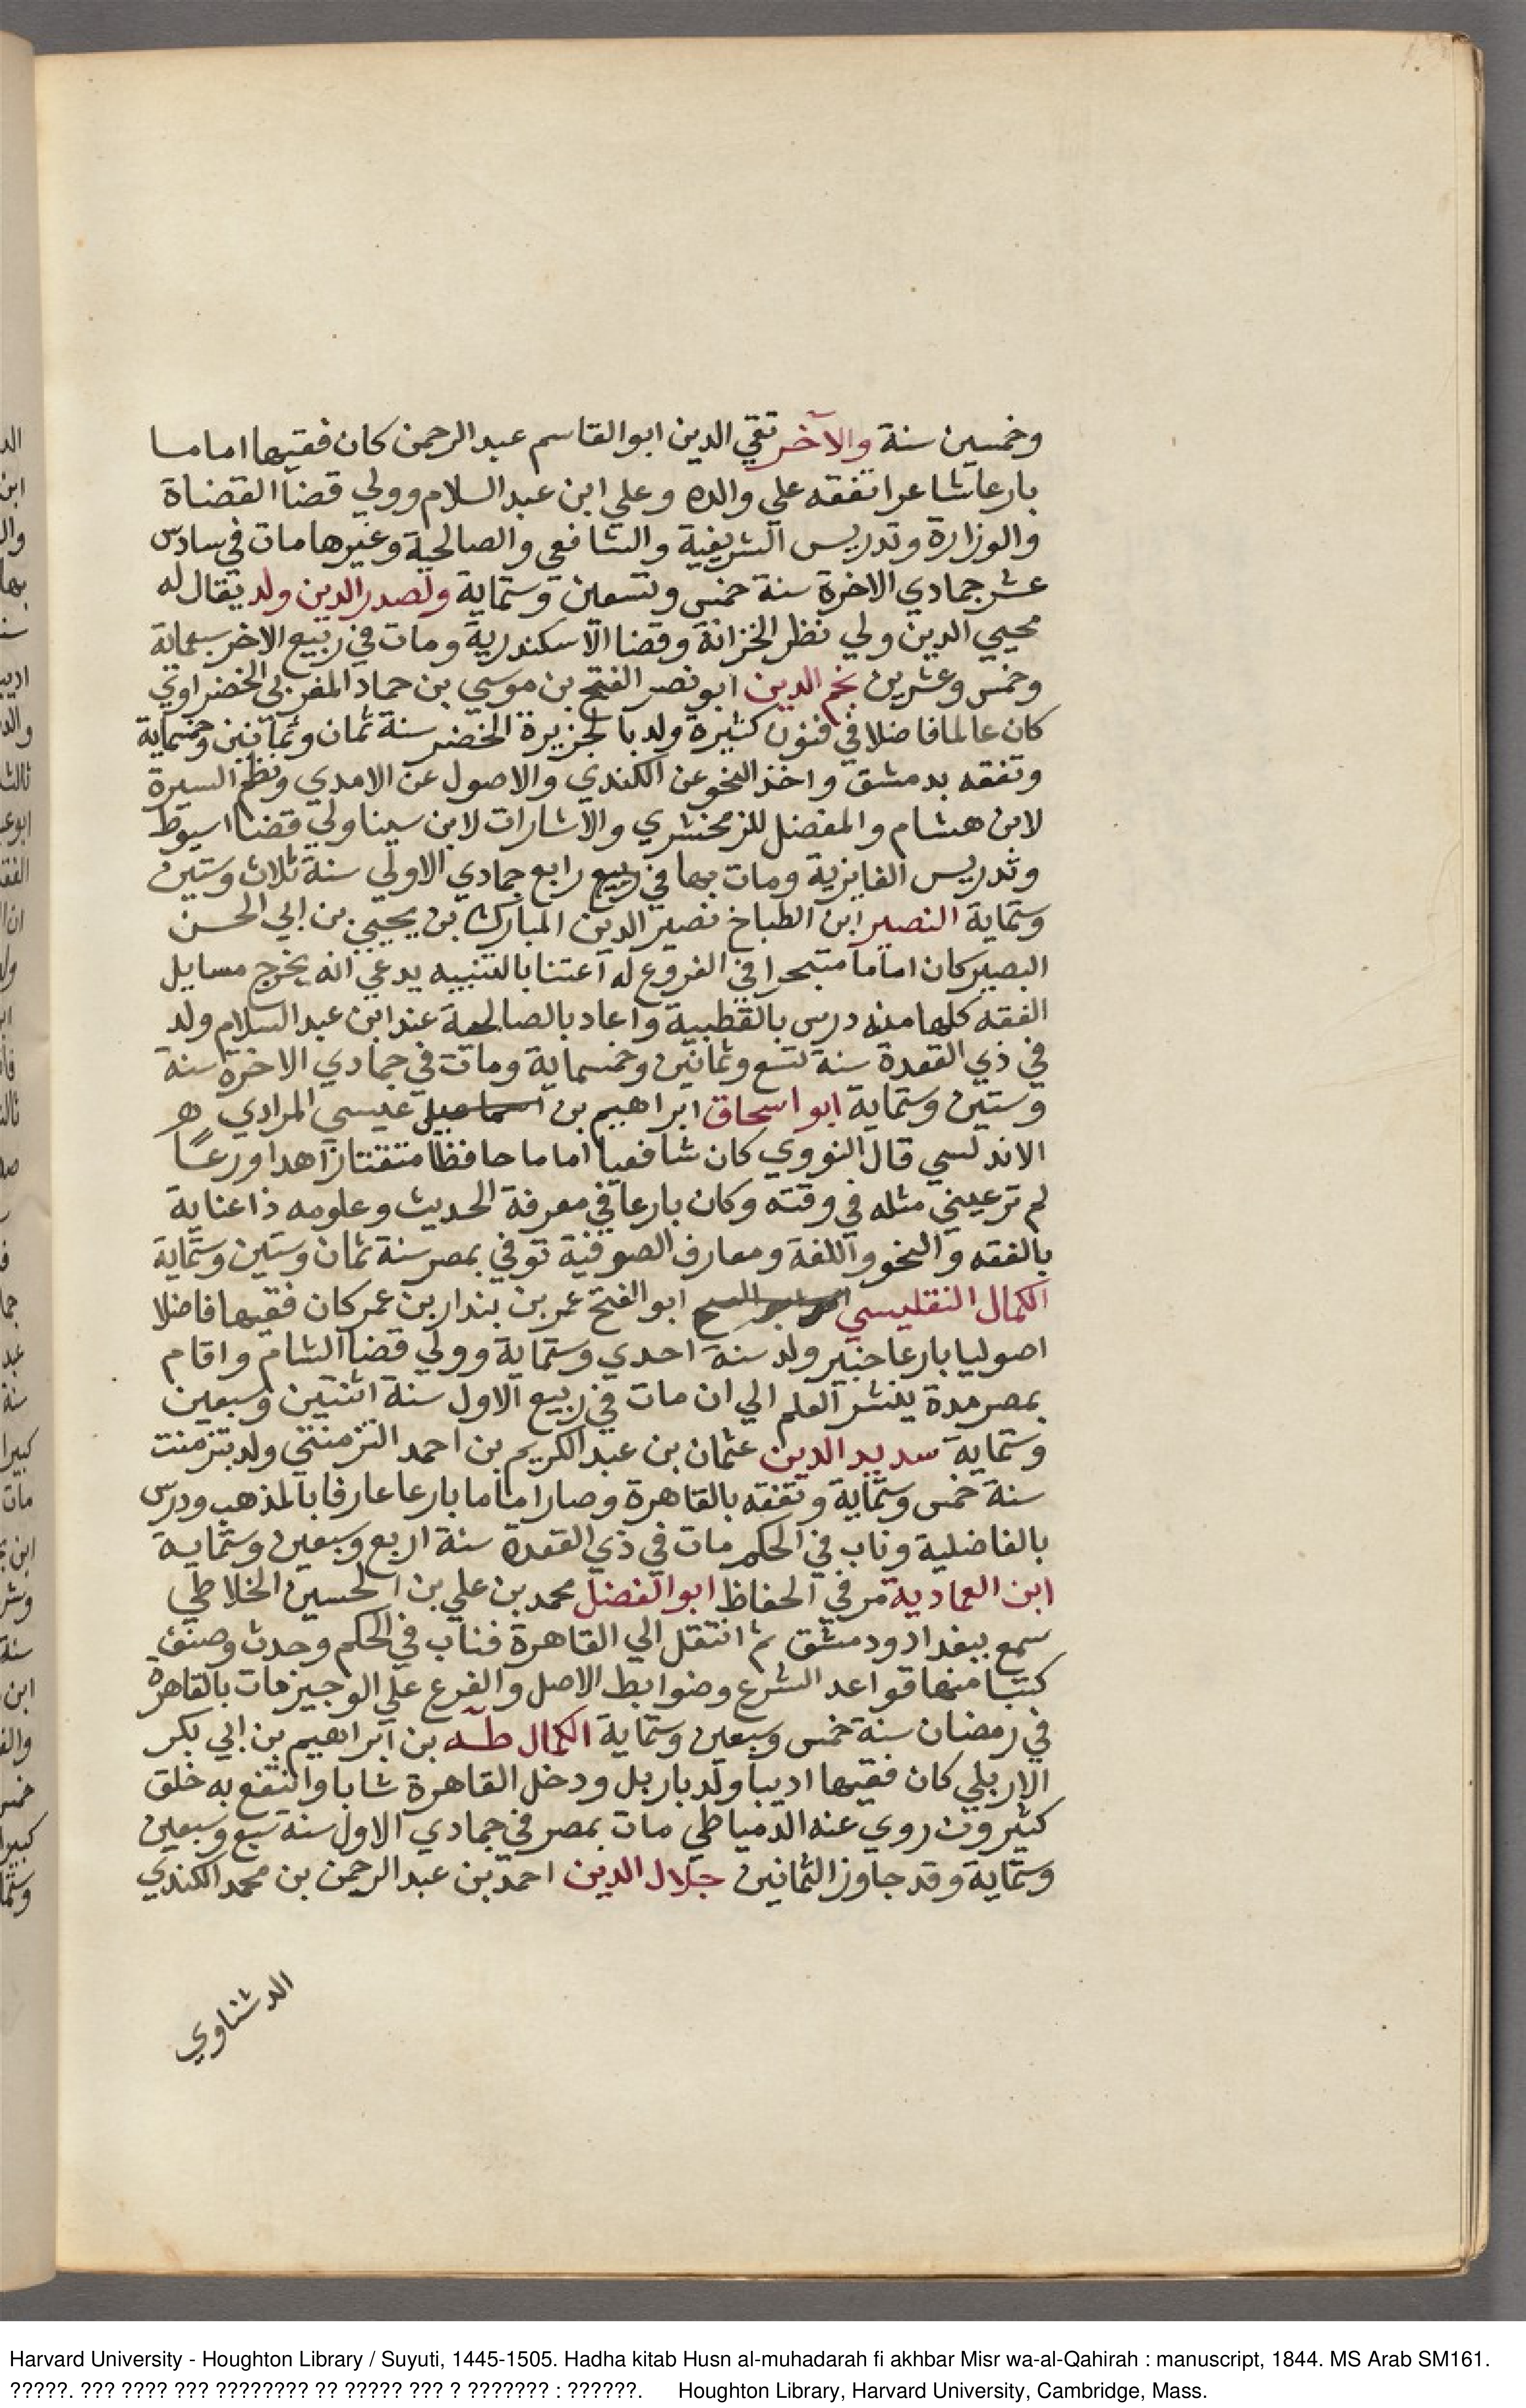 وخمسين سنة والآخر تقي الدين ابوالقاسم عبدالرحمن كان فقيها اماما
بارعا شاعرا تفقه علي والده وعلي ابن عبد السلام وولي قضا القضاة
والوزارة وتدريس الشريفية والشافعي والصالحية وغيرها مات في سادس
عشر جمادي الاخرة سنة خمس وتسعين وستماية ولصدر الدين ولد يقال له
محيي الدين ولي نظر الخزانة وقضا الاسكندرية ومات في ربيع الاخر سبعماية
وخمس وعشرين نجم الدين ابونصر الفتح بن موسي بن حماد المغربي الخضراوي
كان عالما فاضلا في فنون كثيرة ولد بالجزيرة الخضر سنة ثمان وثمانين وخمسماية
وتفقه بدمشق واخذ النحو عن الكندي والاصول عن الامدي ونظم السيرة
لابن هشام والمفصل للزمخشري والاشارات لابن سينا ولي قضا اسيوط
وتدريس الفايزية ومات بها في ربيع رابع جمادي الاولي سنة ثلاث وستين
وستماية النصير ابن الطباخ نصير الدين المبارك بن يحيي بن ابي الحسن
البصير كان اماما متبحرا في الفروع له اعتنا بالتنبيه يدعي انه يخرج مسايل
الفقه كلها منه درس بالقطبية واعاد بالصالحية عند ابن عبد السلام ولد
في ذي القعدة سنة تسع وثمانين وخمسماية ومات في جمادي الاخرة سنة
وستين وستماية ابو اسحاق ابراهيم بن اسماعيل عيسي المرادي ه
الاندلسي قال النووي كان شافعيا اماما حافظا متقنا زاهدا ورعًا
لم تر عيني مثله في وقته وكان بارعا في معرفة الحديث وعلومه ذا عناية
بالفقه والنحو واللغة ومعارف الصوفية توفي بمصر سنة ثمان وستين وستماية
الكمال التفليسي ابو الفتح عمر بن بندار بن عمر كان فقيها فاضلا
اصوليا بارعا خبير ولد سنة احدي وستماية وولي قضا الشام واقام
بمصر مدة ينشر العلم الي ان مات في ربيع الاول سنة اثنتين وسبعين
وستماية سديد الدين عثمان بن عبد الكريم بن احمد التزمنتي ولد بتزمنت
سنة خمس وستماية وتفقه بالقاهرة وصار اماما بارعا عارفا بالمذهب ودرس
بالفاضلية وناب في الحكم مات في ذي القعدة سنة اربع وسبعين وستماية
ابن العمادية مر في الحفاظ ابو الفضل محمد بن علي بن الحسين الخلاطي
سمع ببغداد ودمشق ثم انتقل الي القاهرة فناب في الحكم وحدث وصنف
كتبا منها قواعد الشرع وضوابط الاصل والفرع علي الوجيز مات بالقاهرة
في رمضان سنة خمس وسبعين وستماية الكمال طه بن ابراهيم بن ابي بكر
الاربلي كان فقيها اديبا ولد باربل ودخل القاهرة شابا وانتفع به خلق
كثيرون روي عنه الدمياطي مات بمصر في جمادي الاول سنة سبع وسبعين
وستماية وقد جاوز الثمانين جلال الدين احمد بن عبد الرحمن بن محمد الكندي
الدشناوي
Harvard University - Houghton Library / Suyuti, 1445-1505. Hadha kitab Husn al-muhadarah fi akhbar Misr wa-al-Qahirah : manuscript, 1844. MS Arab SM161.
?????. ??? ???? ??? ???????? ?? ????? ??? ? ??????? : ??????. Houghton Library, Harvard University, Cambridge, Mass.